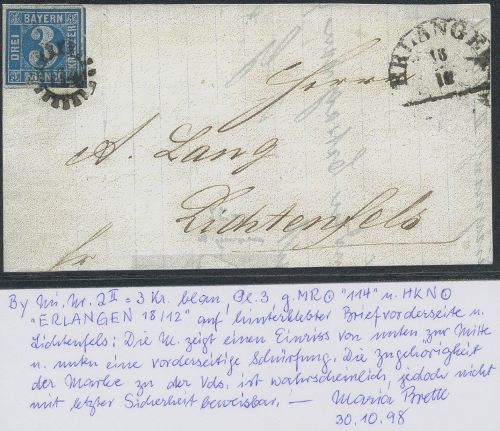 BAYERN
DREI 3 KREUZER
FRANCO
ERLANGEN
18
12
Herrn
A. Lang
Lichtenfels
fr
By Mi. Nr. 2II = 3 Kr. blau, Pl. 3, g. MR⊙ "114" u. HK⊙
"ERLANGEN 18/12" auf hinterklebter Briefvorderseite n.
Lichtenfels; Die M. zeigt einen Einriss von unten zur Mitte
u. unten eine vorderseitige Schürfung. Die Zugehörigkeit
der Marke zu der Vds. ist wahrscheinlich, jedoch nicht
mit letzter Sicherheit beweisbar. — Maria Brettl
30.10.98